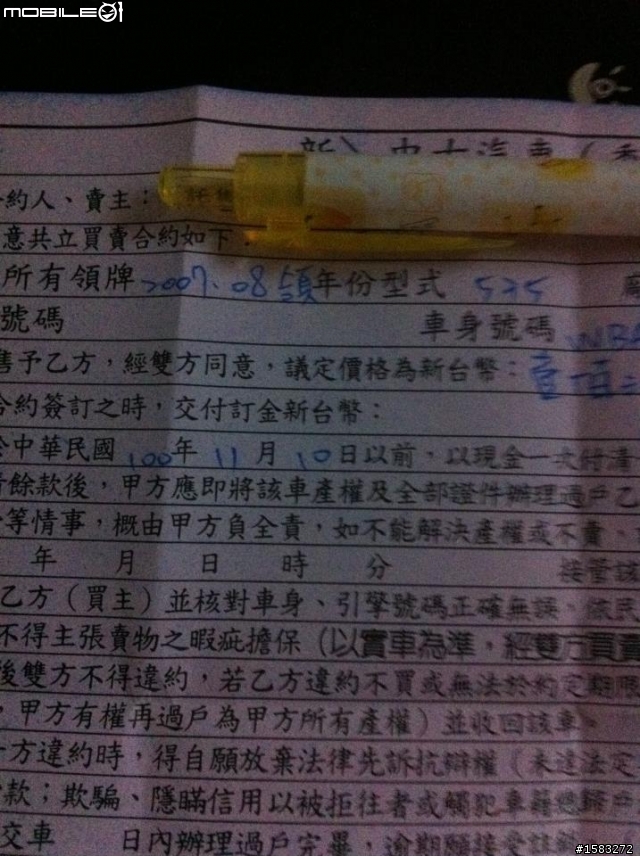 MOBILE01
中古汽車（
約人、賣主：
意共立買賣合約如下：
所有領牌2007.08領年份型式 525
號碼 車身號碼 WBA
售予乙方，經雙方同意，議定價格為新台幣：壹佰
合約簽訂之時，交付訂金新台幣：
於中華民國100年11月10日以前，以現金一次付清
餘款後，甲方應即將該車產權及全部證件辦理過戶乙
等情事，概由甲方負全責，如不能解決產權或不貴、
年 月 日 時 分 接管該
乙方（買主）並核對車身、引擎號碼正確無誤、依民
不得主張賣物之暇疵擔保（以實車為準，經雙方買賣
後雙方不得違約，若乙方違約不買或無法於約定期限
，甲方有權再過戶為甲方所有產權）並收回該車。
方違約時，得自願放棄法律先訴抗辯權（未達法定
款；欺騙、隱瞞信用以被拒往者或觸犯車籍總歸戶
交車 日內辦理過戶完畢，逾期願接受註銷
#1583272